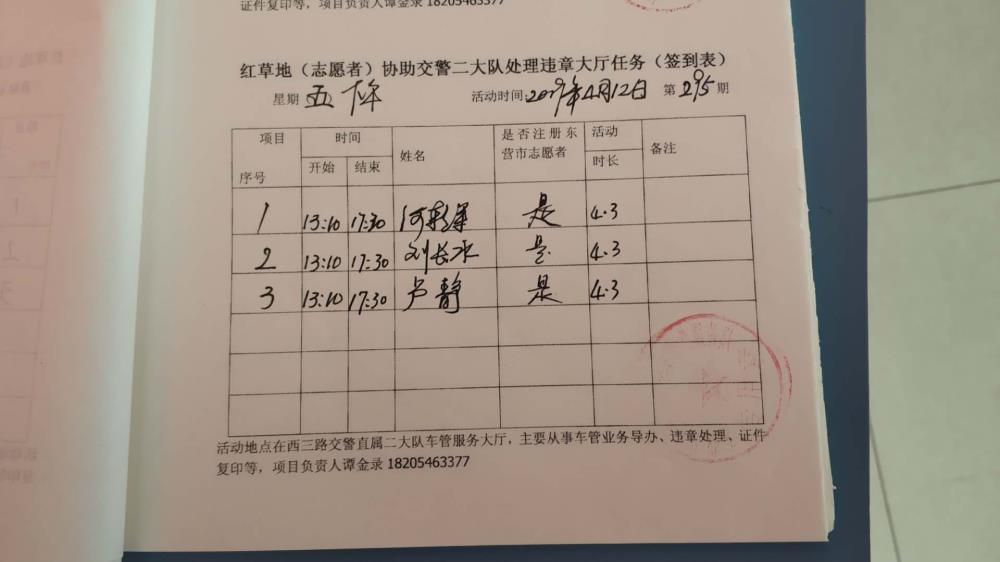 证件复印等，项目负责人谭金录 18205463377
红草地（志愿者）协助交警二大队处理违章大厅任务（签到表）
星期 五 下午 活动时间:2019年4月12日 第 295 期
项目 时间 姓名 是否注册东营市志愿者 活动时长 备注
序号 开始 结束
1 13:10 17:30 是 4.3
2 13:10 17:30 刘长水 是 4.3
3 13:10 17:30 卢静 是 4.3
活动地点在西三路交警直属二大队车管服务大厅，主要从事车管业务导办、违章处理、证件
复印等，项目负责人谭金录 18205463377